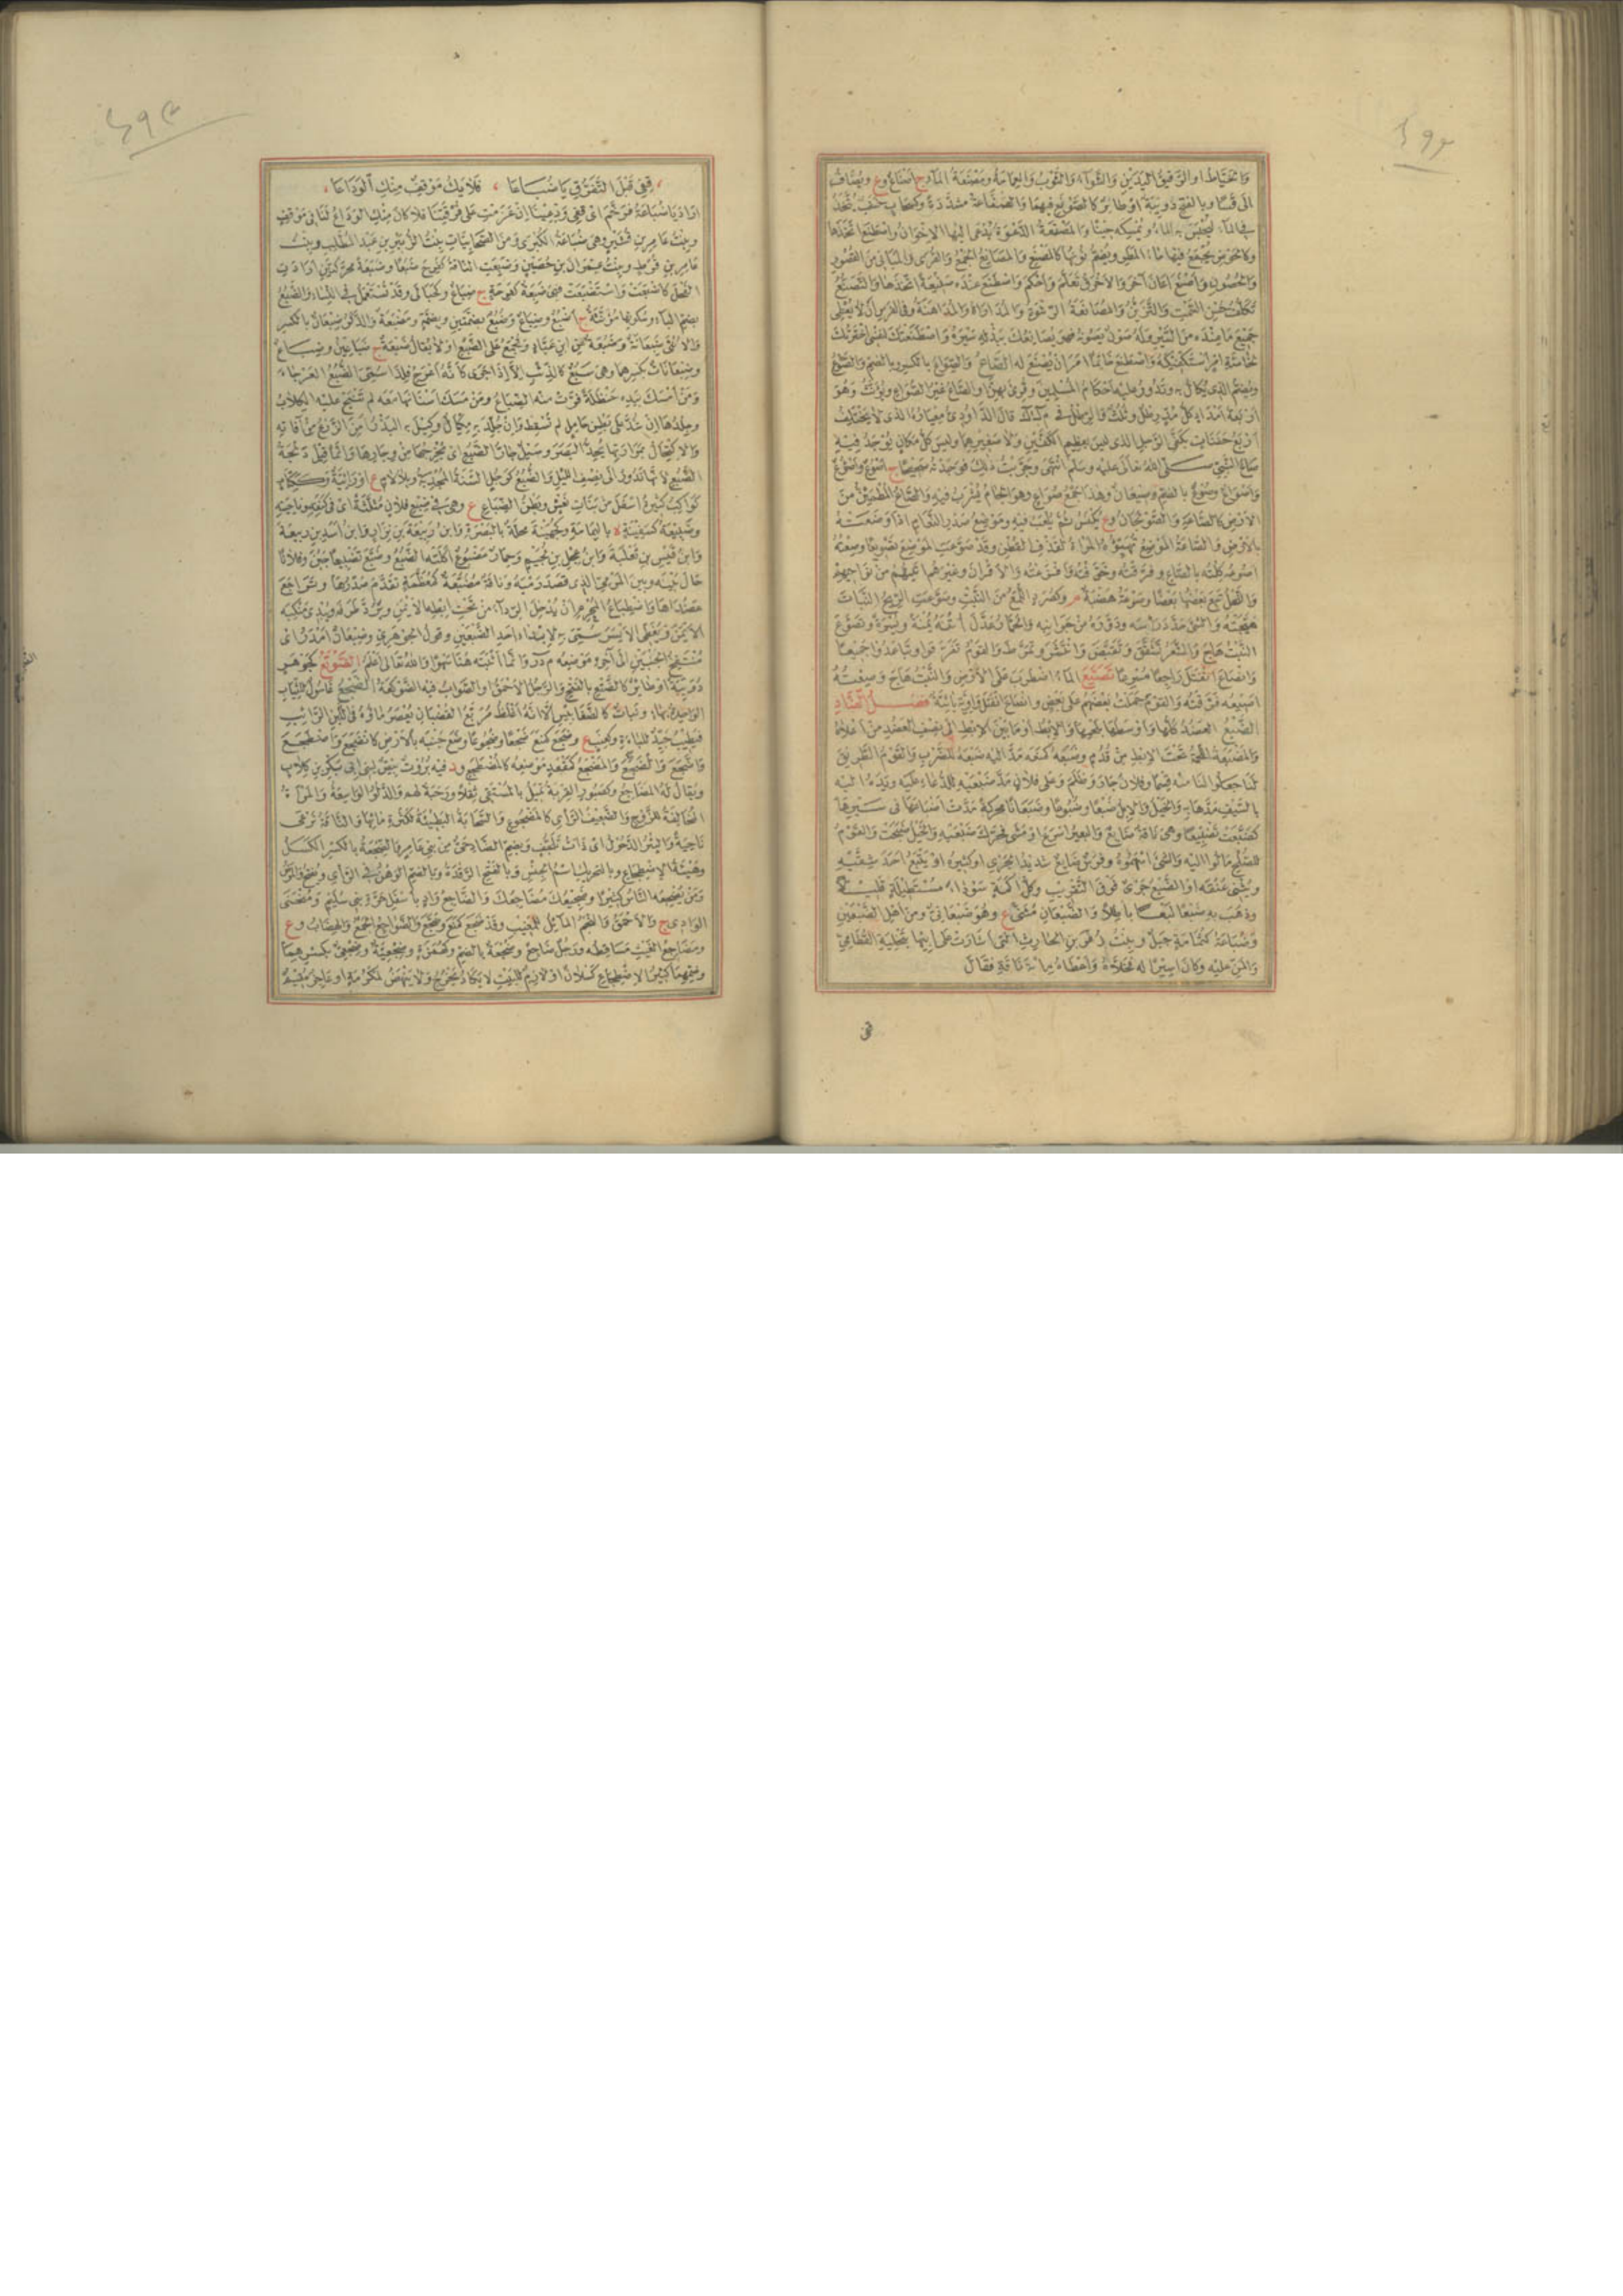 والخياط او الرقيق اليدين والشواء والثوب والعمامة ومصنعة الماء ج اصناع وع ويضاف
الى قسا وبالفتح دويبة او طائر كالصوتع فيهما
في الماء ليحبس به الماء ويمسكه حينا والمصنعة الدعوة يدعى اليها الاخوان واصطنع اتخذها
وكالحوض يجمع فيها ماء المطر ويضم نونها كالمصنع والمصانع الجمع والقرى والمباني من القصور
والحصون واصنع اعان آخر والاخرق تعلم واحكم واصطنع عنده صنيعة اتخذها والتصنع
تكلف حسن السمت والتزين والمصانعة الرشوة والمداراة والمداهنة وفي الفرس ان لا يعطى
جميع ما عنده من السير وله صون يصونه فهو يصانعك ببذله سيره واصطنعتك لنفسي اخترتك
لخاصة امر استكفيكه واصطنع خاتما امر ان يصنع له الصاع والصواع بالكسر وبالضم والصوع
ويضم الذي يكال به وتدور عليه احكام المسلمين وقرئ بهن او الصاع غير الصواع ويؤنث وهو
اربعة امداد كل مد رطل وثلث والرطل في م ك ك قال الداودي معياره الذي لا يختلف
اربع حفنات بكفي الرجل الذي ليس بعظيم الكفين ولا صغيرهما وليس كل مكان يوجد فيه
صاع النبي صلى الله تعالى عليه وسلم انتهى وجربت ذلك فوجدته صحيحا ج اصوع واصؤع
واصواع وصوع بالضم وصيعان وهذا جمع صواع وهو الجام يشرب فيه والصاع المطمئن من
الارض كالصاعة والصولجان وع يكنس ثم يلعب فيه وموضع صدر النعام اذا وضعته
بالارض والصاعة الموضع تهيئه المرأة لندف القطن وقد صوعت الموضع تصويعا وصعته
اصوعه كلته بالصاع وفرقته وخوفته وافزعته والاقران وغيرهم اتيتهم من نواحيهم
والنحل تبع بعضها بعضا وصوعة هضبة م وكصرد اللمع من النبت وصوعت الريح النبات
هيجته والشئ حدد راسه ودوره من جوانبه والحمار عدل اتنه يمنة ويسرة وتصوع
النبت هاج والشعر تشقق وتقبض وانتشر وتمرط والقوم تفرقوا وتباعدوا جميعا
وانصاع انفتل راجعا مسرعا تصيع الماء اضطرب على الارض والنبت هاج وصعته
اصيعه فرقته والقوم حملت بعضهم على بعض وانصاع انفتل واوية يائية فصل الضاد
الضبع العضد كلها او وسطها بلحمها والابط او ما بين الابط الى نصف العضد من اعلاه
والمضبعة اللحمة تحت الابط من قدم وضبعه كمنعه مد اليه ضبعه للضرب والقوم الطريق
لنا جعلوا لنا منه قسما وفلان جار وظلم وعلى فلان مد ضبعيه للدعاء عليه ويده اليه
بالسيف مدها به والخيل والابل ضبعا وضبوعا وضبعانا محركة مدت اضباعها في سيرها
كضبعت تضبيعا وهي ناقة ضابع والبعير اسرع او مشى فحرك ضبعيه والخيل ضبحت والقوم
للصلح مالوا اليه والشئ اسهموه وفرس ضابع شديد الجري او كثيره او يتبع احد شقيه
ويثني عنقه او الضبع جري فوق التقريب وكل اكمة سوداء مستطيلة قليلا
وذهب به ضبعا لبعا باطلا والضبعان مثنى ع وهو ضبعاني ومن اهل الضبعين
وضباعة كثمامة جبل وبنت زفر بن الحارث التي اشارت على ابيها بتخلية القطامي
والمن عليه وكان اسيرا له فخلاه واعطاه مائة ناقة فقال
قفى
قفي قبل التفرق يا ضباعا ، فلا يك موقف منك الوداعا
اراد يا ضباعة فرخم اي قفي ودعينا ان عزمت على فرقتنا فلا كان منك الوداع لنا في موقف
وبنت عامر بن قشير وهي ضباعة الكبرى ومن الصحابيات بنت الزبير بن عبد المطلب وبنت
عامر بن قرط وبنت عمران بن حصين وضبعت الناقة كفرح ضبعا وضبعة محركتين ارادت
الفحل كاضبعت واستضبعت فهي ضبعة كفرحة ج ضباع وكحبالى وقد تستعمل في النساء والضبع
بضم الباء وسكونها مؤنثة ج اضبع وضباع وضبع بضمتين وبضم ومضبعة والذكر ضبعان بالكسر
والانثى ضبعانة وضبعة عن ابن عباد وتجمع على الضبع او لا يقال ضبعة ج ضباعين وضباع
وضبعانات بكسرها وهي سبع كالذئب الا اذا جرى كانه اعرج فلذا سمى الضبع العرجاء
ومن امسك بيده حنظلة فرت منه الضباع ومن مسك اسنانها معه لم تنبح عليه الكلاب
وجلدها ان شد على بطن حامل لم تسقط وان جلد به مكيال وكيل به البذر امن الزرع من آفاته
والاكتحال بمرارتها يحد البصر وسيل جار الضبع اي مخرجها من وجارها وانما قيل دلجة
الضبع لانها تدور الى نصف الليل والضبع كرجل السنة المجدبة وبلا لام ع او رابية وككتاب
كواكب كثيرة اسفل من بنات نعش وبطن الضباع ع وهي في ضبع فلان مثلثة اي في كنفه وناحيته
وضبيعة كسفينة ة باليمامة وكجهينة محلة بالبصرة وابن ربيعة بن نزار وابن اسد بن ربيعة
وابن قيس بن ثعلبة وابن عجل بن لجيم وحمار مضبوع اكلته الضبع وضبع تضبيعا جبن وفلانا
حال بينه وبين المرمى الذي قصد رميه وناقة مضبعة كمعظمة تقدم صدرها وتراجع
عضداها واضطباع المحرم ان يدخل الرداء من تحت ابطه الايمن ويرد طرفه ويبدي منكبه
الايمن ويغطي الايسر سمي به لابداء احد الضبعين وقول الجوهري وضبعان امدر اي
منتفخ الجنبين الى آخره موضعه م د ر وانما اثبته هنا سهوا والله تعالى اعلم الضوتع كجوهر
دويبة او طائر كالضتع بالفتح والرجل الاحمق او الصواب فيه الضوكعة الضجع غاسول للثياب
الواحدة بهاء ونبات كالضغابيس الا انه اغلظ مربع القضبان يعصر ماؤه في اللبن الرائب
فيطيب جيد للباءة وكعنب ع وضجع كمنع ضجعا وضجوعا وضع جنبه بالارض كانضجع واضطجع
واضجع والضجع والمضجع كمقعد موضعه كالمضطجع ود فيه بروث بيض لبني ابي بكر بن كلاب
ويقال له المضاجع وكصبور القربة تميل بالمستقي ثقلا ورحبة لهم والدلو الواسعة والمرأة
المخالفة للزوج والضعيف الرأي كالمضجوع والسحابة البطيئة لكثرة مائها والناقة ترعى
ناحية والبئر الدحول اي ذات تلجف وبضم الضاد حي من بني عامر والضجعة بالكسر الكسل
وهيئة الاضطجاع وبالتحريك اسم الجنس وبالفتح الرقدة وبالضم الوهن في الرأي
ومن يضجعه الناس كثيرا وضجيعك مضاجعك والضاجع واد باسفل حرة بني سليم ومنحنى
الوادي ج والاحمق والنجم المائل للمغيب وقد ضجع كمنع وضجع والضواجع الجمع والهضاب وع
ومضاجع الغيث مساقطه ورجل ضاجع وضجعة بالضم وكهمزة وضجعية وضجعي بكسرهما
وضمهما كثير الاضطجاع كسلان او لازم للبيت لا يكاد يخرج ولا ينهض لمكرمة او عاجز مقيم